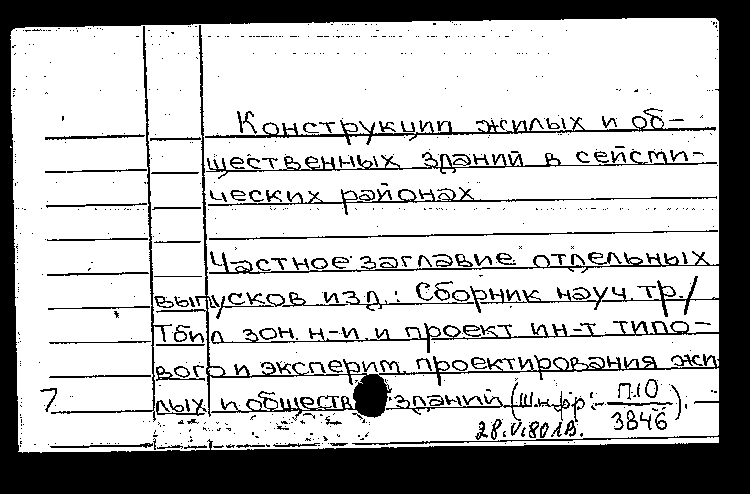 Конструкции жилых и об-
щественных зданий в сейсми-
ческих районах
Частное заглавие отдельных
выпусков изд.: Сборник науч. тр./
Тбил зон. н-и. и проект ин-т типо-
вого и эксперим. проектирования жи
лых и обществ зданий (Шифр:- П10/3846). -
28.VI.80 ЛВ.